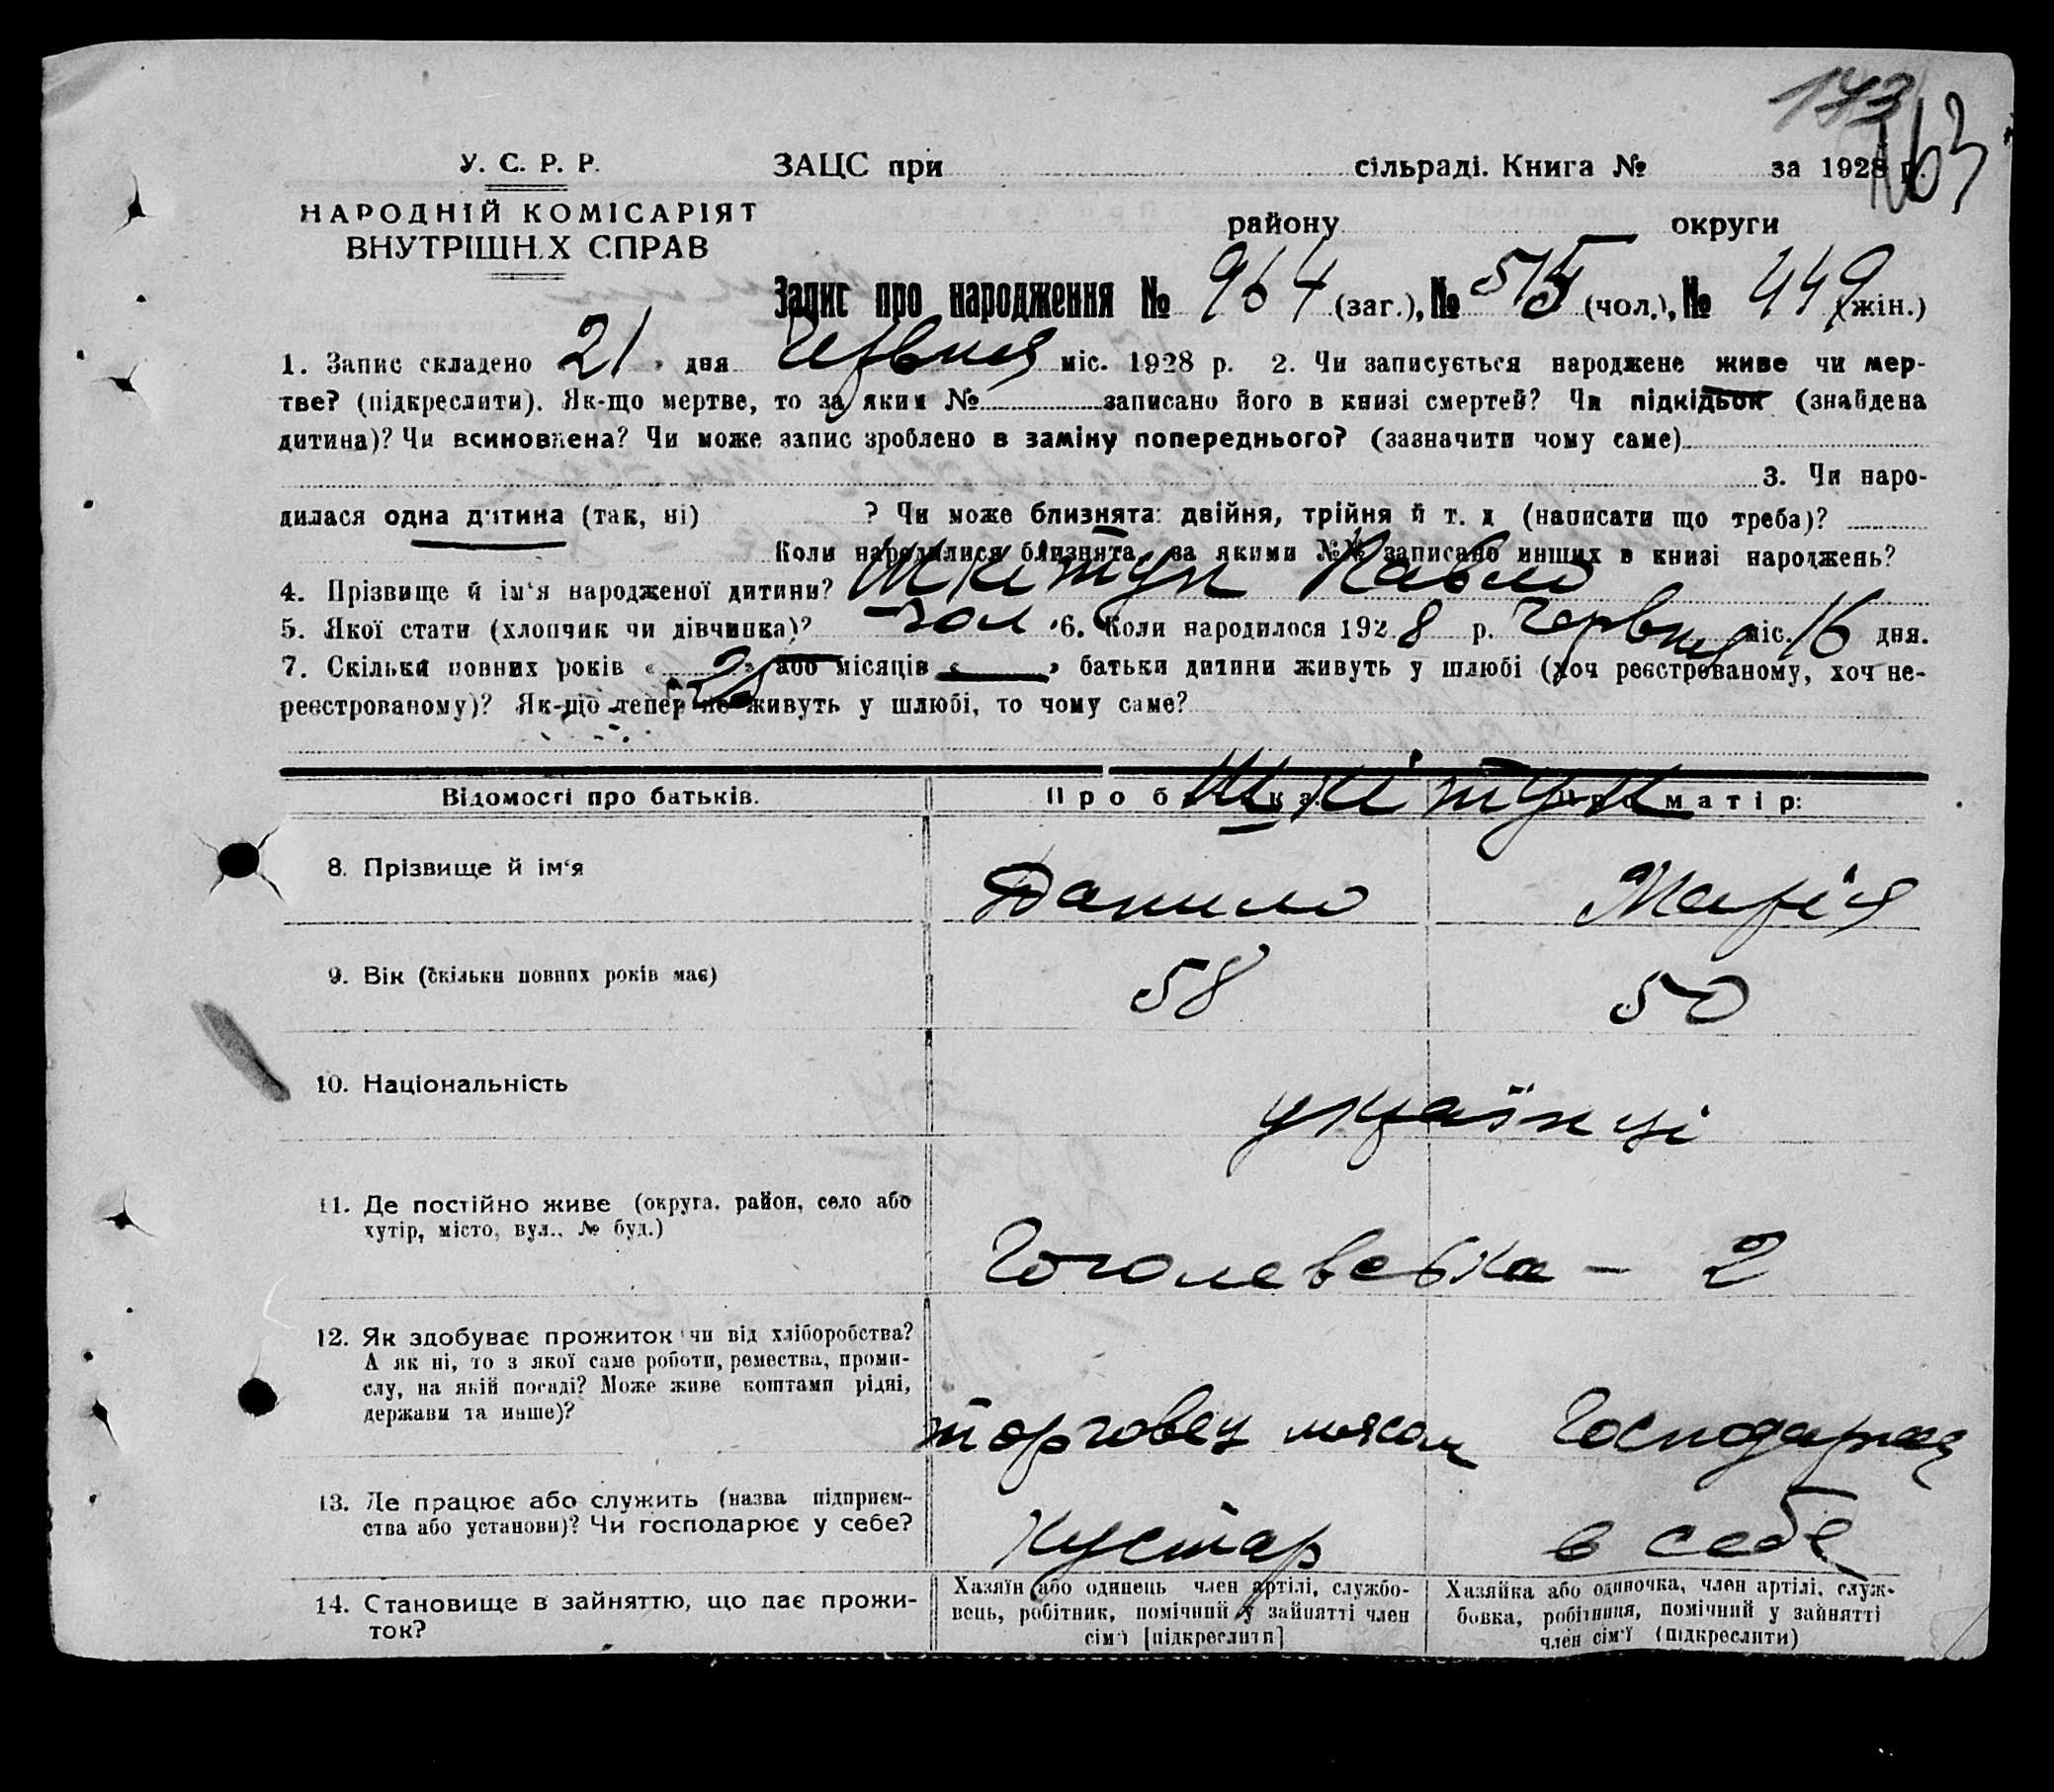 173
163
У. С. Р. Р. ЗАЦС при сільраді. Книга № за 1928 р.
НАРОДНІЙ КОМІСАРІЯТ
району округи
ВНУТРІШН.Х СПРАВ
Запис про народження № 964 (заг.), № 515 (чол.), № 449 (жін.)
1. Запис складено 21 дня Червня міс. 1928 р. 2. Чи записується народжене живе чи мер-
тве? (підкреслити). Як-що мертве, то за яким № записано його в книзі смертей? Чи підкідьок (знайдена
дитина)? Чи всиновлена? Чи може запис зроблено в заміну попереднього? (зазначити чому саме)
3. Чи наро-
дилася одна дитина (так, ні) ? Чи може близнята: двійня, трійня й т. д (написати що треба)?
Коли народилися близнята, за якими №№ записано инших в книзі народжень?
4. Прізвище й ім‘я народженої дитини? Шкітун Павло
5. Якої стати (хлопчик чи дівчинка)? чол 6. Коли народилося 1928 р. Червня міс. 16 дня.
7. Скільки повних років « » або місяців « » батьки дитини живуть у шлюбі (хоч реєстрованому, хоч не-
реєстрованому)? Як-що тепер не живуть у шлюбі, то чому саме?
Відомості про батьків. Про батька: Про матір:
Шкітун
8. Прізвище й ім‘я Данило Марія
9. Вік (скільки повних років має) 58 50
10. Національність українці
11. Де постійно живе (округа, район, село або
хутір, місто, вул., № буд.) Гоголевська - 2
12. Як здобуває прожиток чи від хліборобства?
А як ні, то з якої саме роботи, ремества, проми-
слу, на якій посаді? Може живе коштами рідні,
держави та инше)? торговец мясом Господарка
13. Де працює або служить (назва підприєм-
ства або установи)? Чи господарює у себе? Кустар в себе
14. Становище в зайняттю, що дає прожи-
ток?
Хазяїн або одинець член артілі, службо-
вець, робітник, помічний у зайнятті член
сім‘ї [підкреслити]
Хазяйка або одиночка, член артілі, служ-
бовка, робітниця, помічний у зайнятті
член сім‘ї (підкреслити)